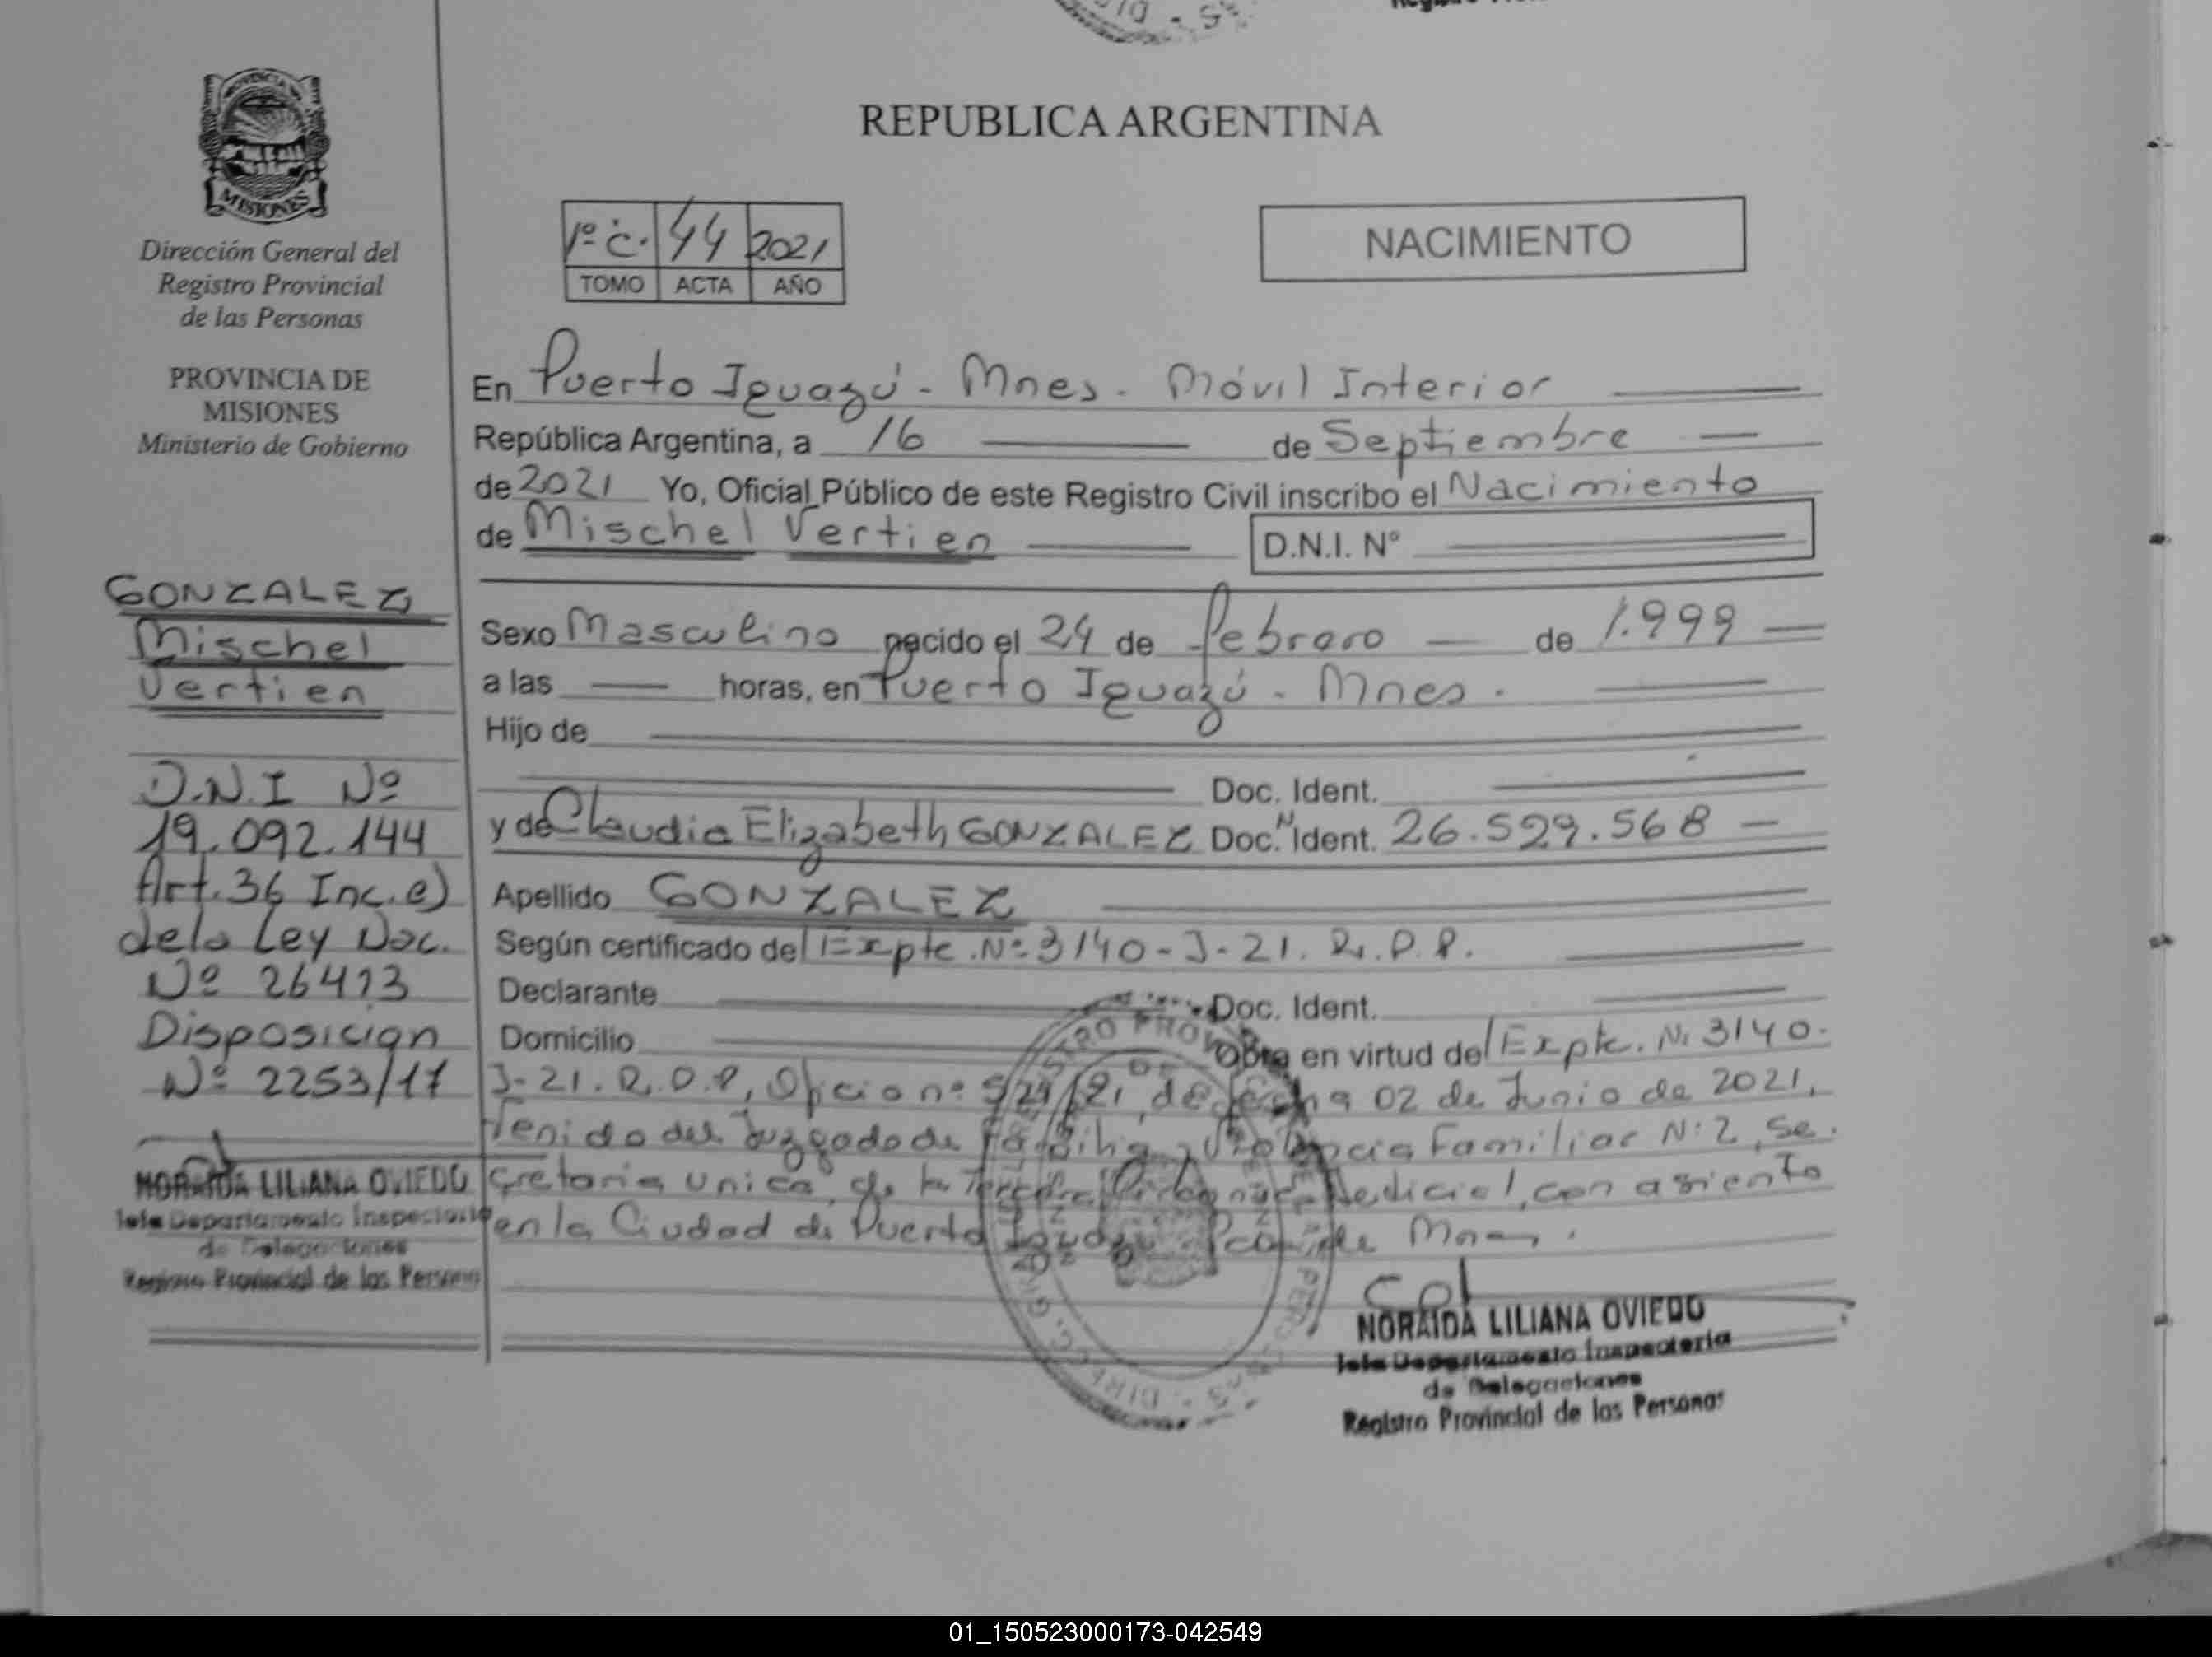 REPUBLICA ARGENTINA
PROVINCIA DE
MISIONES
Dirección General del
Registro Provincial
de las Personas
PROVINCIA DE
MISIONES
Ministerio de Gobierno
1º C. 44 2021
TOMO ACTA AÑO
NACIMIENTO
En Puerto Iguazú - Mnes. Móvil Interior
República Argentina, a 16 de Septiembre
de 2021 Yo, Oficial Público de este Registro Civil inscribo el Nacimiento
de Mischel Vertien D.N.I. N°
Sexo Masculino nacido el 24 de febrero de 1.999
a las horas, en Puerto Iguazú - Mnes.
Hijo de
Doc. Ident.
y de Claudia Elizabeth GONZALEZ Doc. Ident. 26.529.568
Apellido GONZALEZ
Según certificado del Expte. Nº 3140-J-21. R.P.P.
Declarante Doc. Ident.
Domicilio Obra en virtud del Expte. Nº 3140-
J-21. R.P.P, Oficio nº /21, de fecha 02 de Junio de 2021,
Venido del Juzgado de Familia y Violencia Familiar Nº 2, Se-
cretaria unica, de la Tercera Judicial, con asiento
en la Ciudad de Puerto Iguazú Mnes.
GONZALEZ
Mischel
Vertien
D.N.I Nº
19.092.144
Art. 36 Inc. e)
de la Ley Nac.
Nº 26413
Disposición
Nº 2253/17
NORAIDA LILIANA OVIEDO
Jefa Departamento Inspectoria
de Delegaciones
Registro Provincial de las Personas
NORAIDA LILIANA OVIEDO
Jefa Departamento Inspectoria
de Delegaciones
Registro Provincial de las Personas
01_150523000173-042549